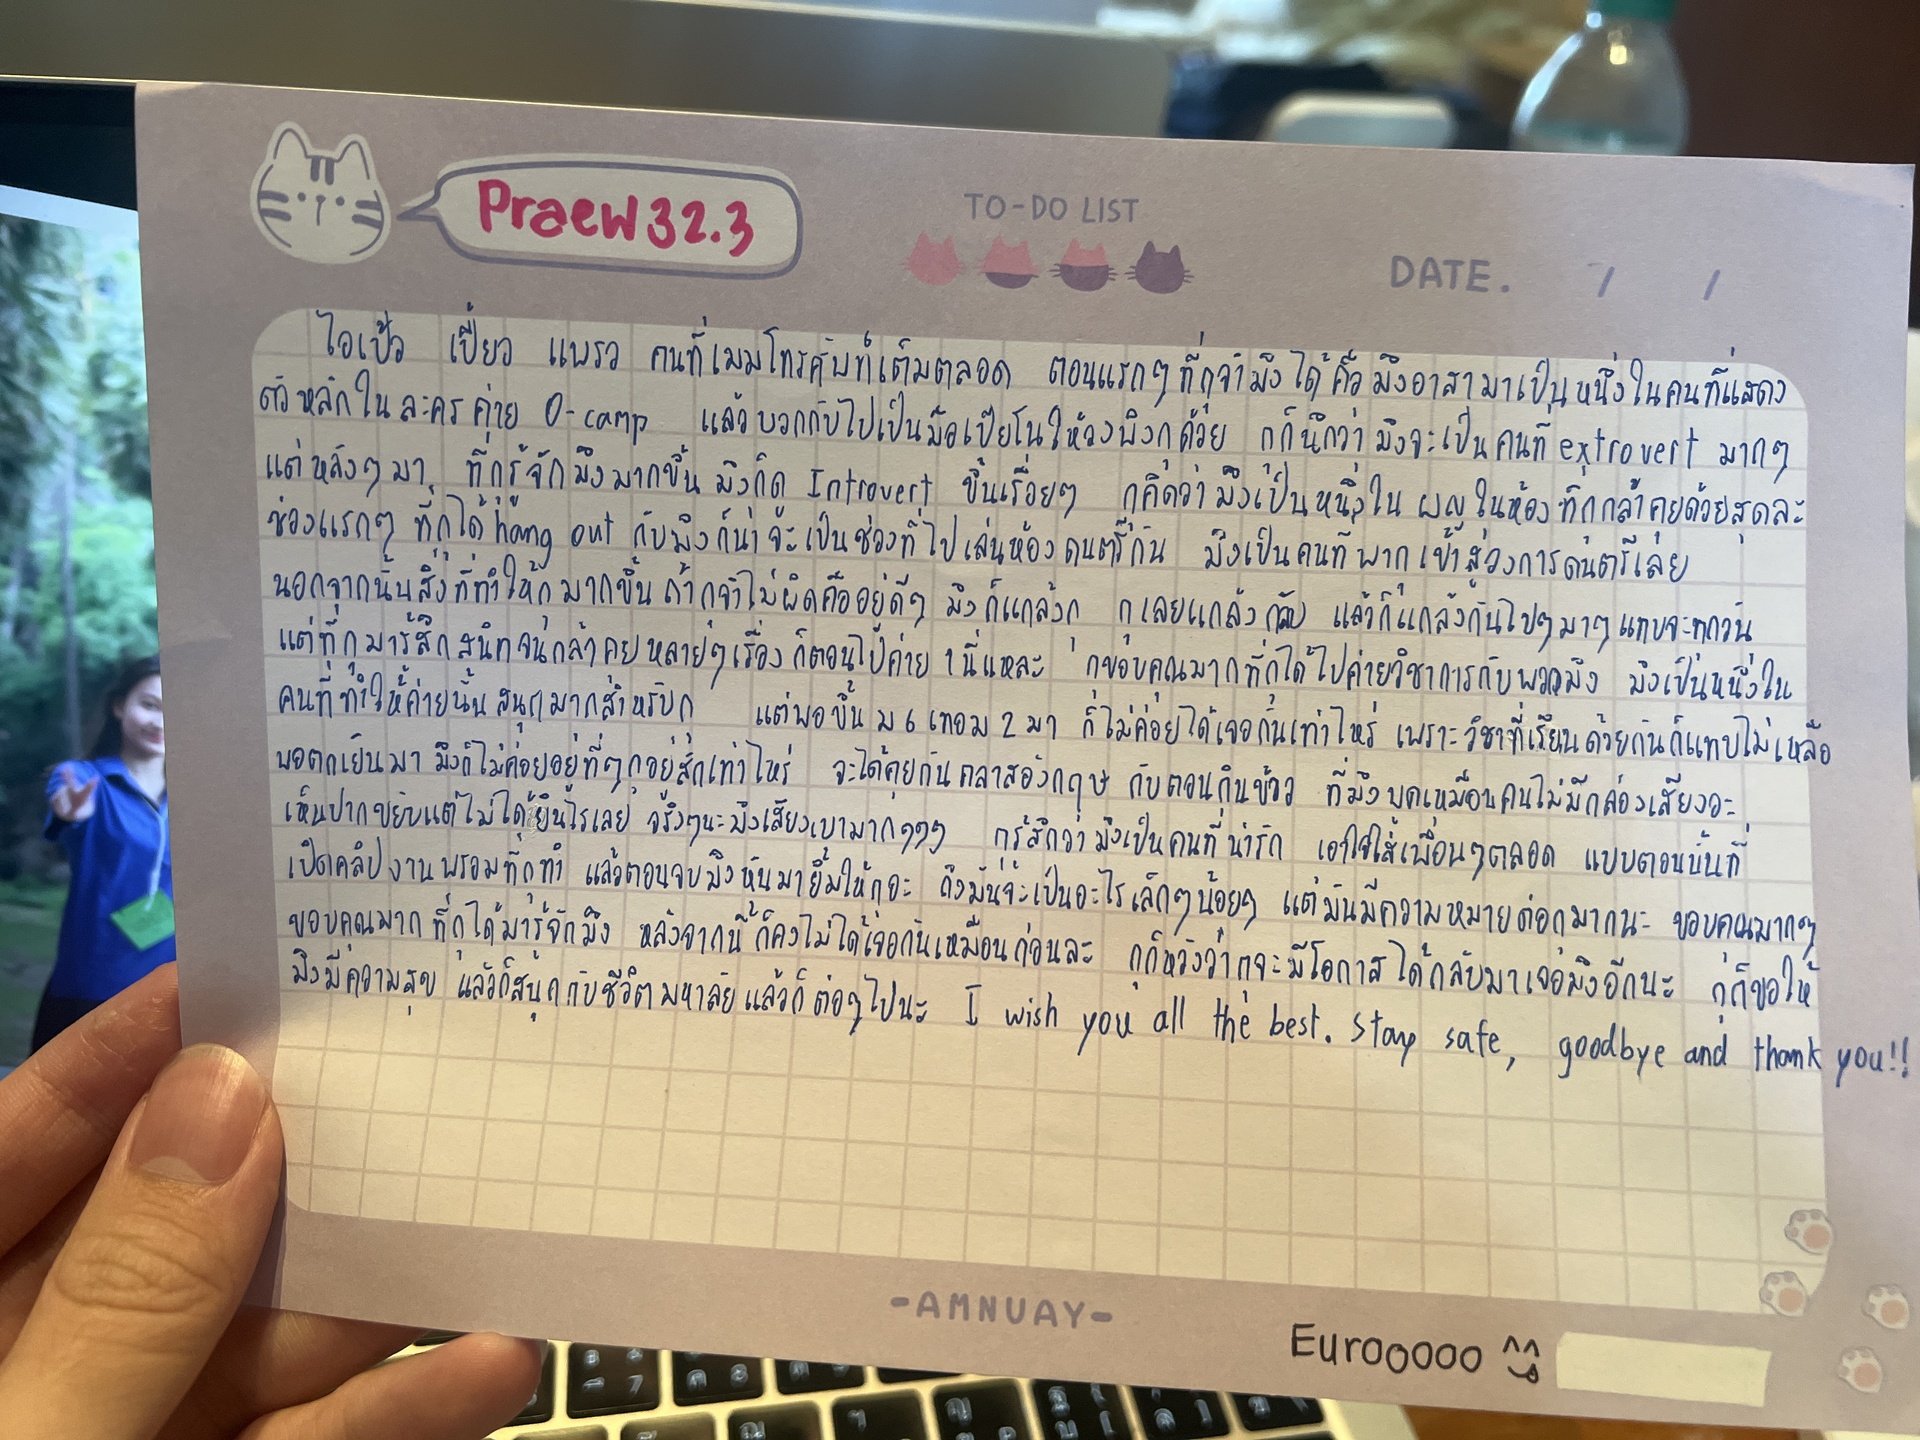 Praew 32.3
TO-DO LIST
DATE. / /
ไอเป๋ว เปี้ยว แพรว คนที่เมมโทรศัพท์เต็มตลอด ตอนแรกๆ ที่กูจำมึงได้ คือ มึงอาสามาเป็นหนึ่งในคนที่แสดง
ตัวหลักใน ละครค่าย O-camp แล้วบวกกับไปเป็นมือเปียโนให้วงพิงกูด้วย กูก็นึกว่ามึงจะเป็นคนที่ extrovert มากๆ
แต่หลังๆ มา ที่กูรู้จักมึงมากขึ้น มึงก็ด Introvert ขึ้นเรื่อยๆ กูคิดว่ามึงเป็นหนึ่งใน ผญในห้องที่กูกล้าคุยด้วยสุดละ
ช่วงแรกๆ ที่กูได้ hang out กับมึงก็น่าจะเป็นช่วงที่ไปเล่นห้องดนตรีกัน มึงเป็นคนที่พากูเข้าสู่วงการดนตรีเลย
นอกจากนั้นสิ่งที่ทำให้กูมากขึ้น ถ้ากูจำไม่ผิดคืออยู่ดีๆ มึงก็แกล้งกู กูเลยแกล้งกลับ แล้วก็แกล้งกันไปๆ มาๆ แทบจะทุกวัน
แต่ที่กูมารู้สึกสนิทจนกล้าคุยหลายๆ เรื่อง ก็ตอนไปค่าย 1 นี่แหละ กูขอบคุณมากที่กูได้ไปค่ายวิชาการกับพวกมึง มึงเป็นหนึ่งใน
คนที่ทำให้ค่ายนั้นสนุกมากสำหรับกู แต่พอขึ้น ม 6 เทอม 2 มา ก็ไม่ค่อยได้เจอกันเท่าไหร่ เพราะวิชาที่เรียนด้วยกันก็แทบไม่เหลือ
พอตกเย็นมา มึงก็ไม่ค่อยอยู่ที่ๆ กูอยู่สักเท่าไหร่ จะได้คุยกันคลาสอังกฤษ กับตอนกินข้าว ที่มึงพูดเหมือนคนไม่มีกล่องเสียงอะ
เห็นปากขยับแต่ไม่ได้ยินไรเลย จริงๆนะมึงเสียงเบามากๆๆๆ กูรู้สึกว่ามึงเป็นคนที่น่ารัก เอาใจใส่เพื่อนๆตลอด แบบตอนนั้นที่
เปิดคลิปงานพรอมที่กูทำ แล้วตอนจบมึงหันมายิ้มให้กูอะ ถึงมันจะเป็นอะไรเล็กๆ น้อยๆ แต่มันมีความหมายต่อกูมากนะ ขอบคุณมากๆ
ขอบคุณมาก ที่กูได้มารู้จักมึง หลังจากนี้ก็คงไม่ได้เจอกันเหมือนก่อนละ กูก็หวังว่ากูจะมีโอกาสได้กลับมาเจอมึงอีกนะ กูก็ขอให้
มึงมีความสุข แล้วก็สนุกกับชีวิตมหาลัยแล้วก็ต่อๆ ไปนะ I wish you all the best. Stay safe, goodbye and thank you!!
-AMNUAY-
Eurooooo